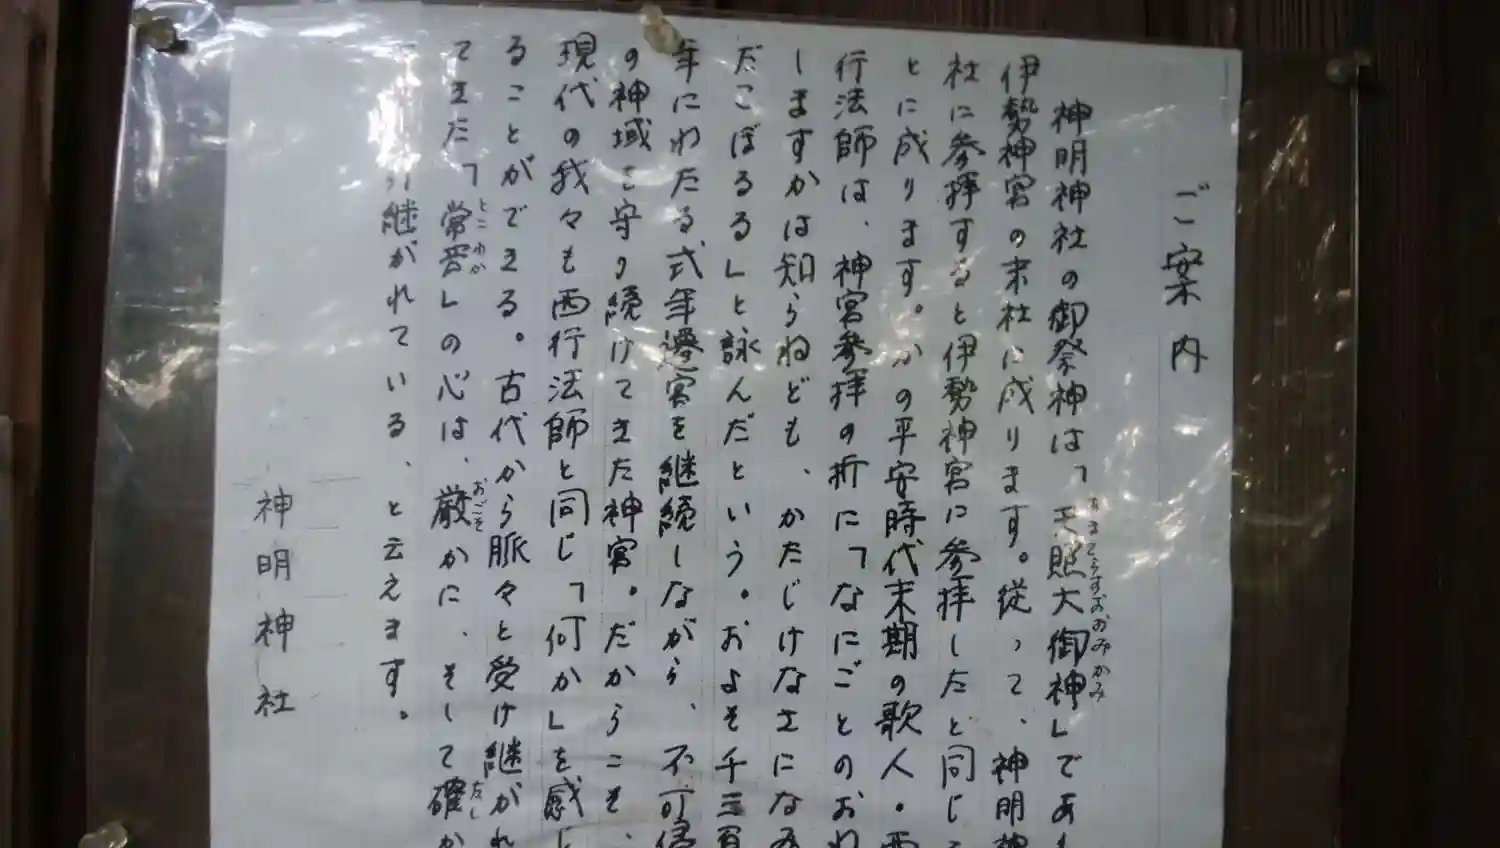 ご案内
神明神社の御祭神は、「天照大御神」であ
あまてらすおおみかみ
伊勢神宮の末社に成ります。従って、神明神
社に参拝すると伊勢神宮に参拝したと同じこ
とに成ります。かの平安時代末期の歌人・西
行法師は、神宮参拝の折に「なにごとのおわ
しますかは知らねども、かたじけなさになみ
だこぼるる」と詠んだという。およそ千三百
年にわたる式年遷宮を継続しながら、不可侵
の神域を守り続けてきた神宮。だからこそ、
現代の我々も西行法師と同じ「何か」を感じ
ることができる。古代から脈々と受け継がれ
てきた「常若」の心は、厳かに、そして確か
とこわか
おごそ
たし
引継がれている、と云えます。
神明神社